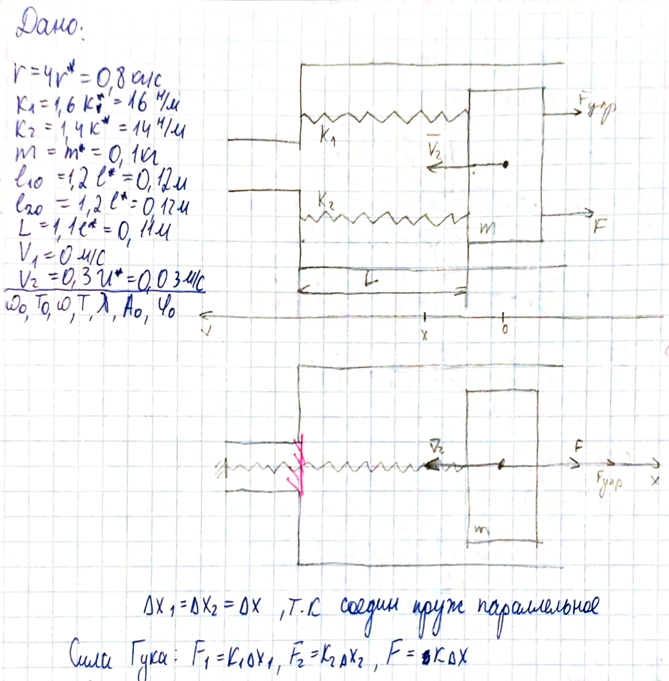 Дано:
r = 4r* = 0,8 кг/с
K₁ = 1,6 K* = 16 Н/м
K₂ = 1,4 K* = 14 Н/м
m = m* = 0,1 кг
l₁₀ = 1,2 l* = 0,12 м
l₂₀ = 1,2 l* = 0,12 м
L = 1,1 l* = 0,11 м
V₁ = 0 м/с
V₂ = 0,3 U* = 0,03 м/с
ω₀, T₀, ω, T, λ, A₀, φ₀
Fупр
K₁
V₂
K₂
m
F
L
x
0
V₂
F
Fупр
x
m
Δx₁ = Δx₂ = Δx , т.к соедин пруж параллельное
Сила Гука: F₁ = K₁Δx₁, F₂ = K₂Δx₂, F = KΔx